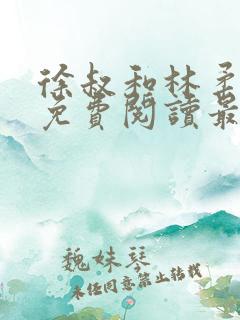 徐叔和林柔
免費閱讀最
魏妹琴
未经同意禁止转载